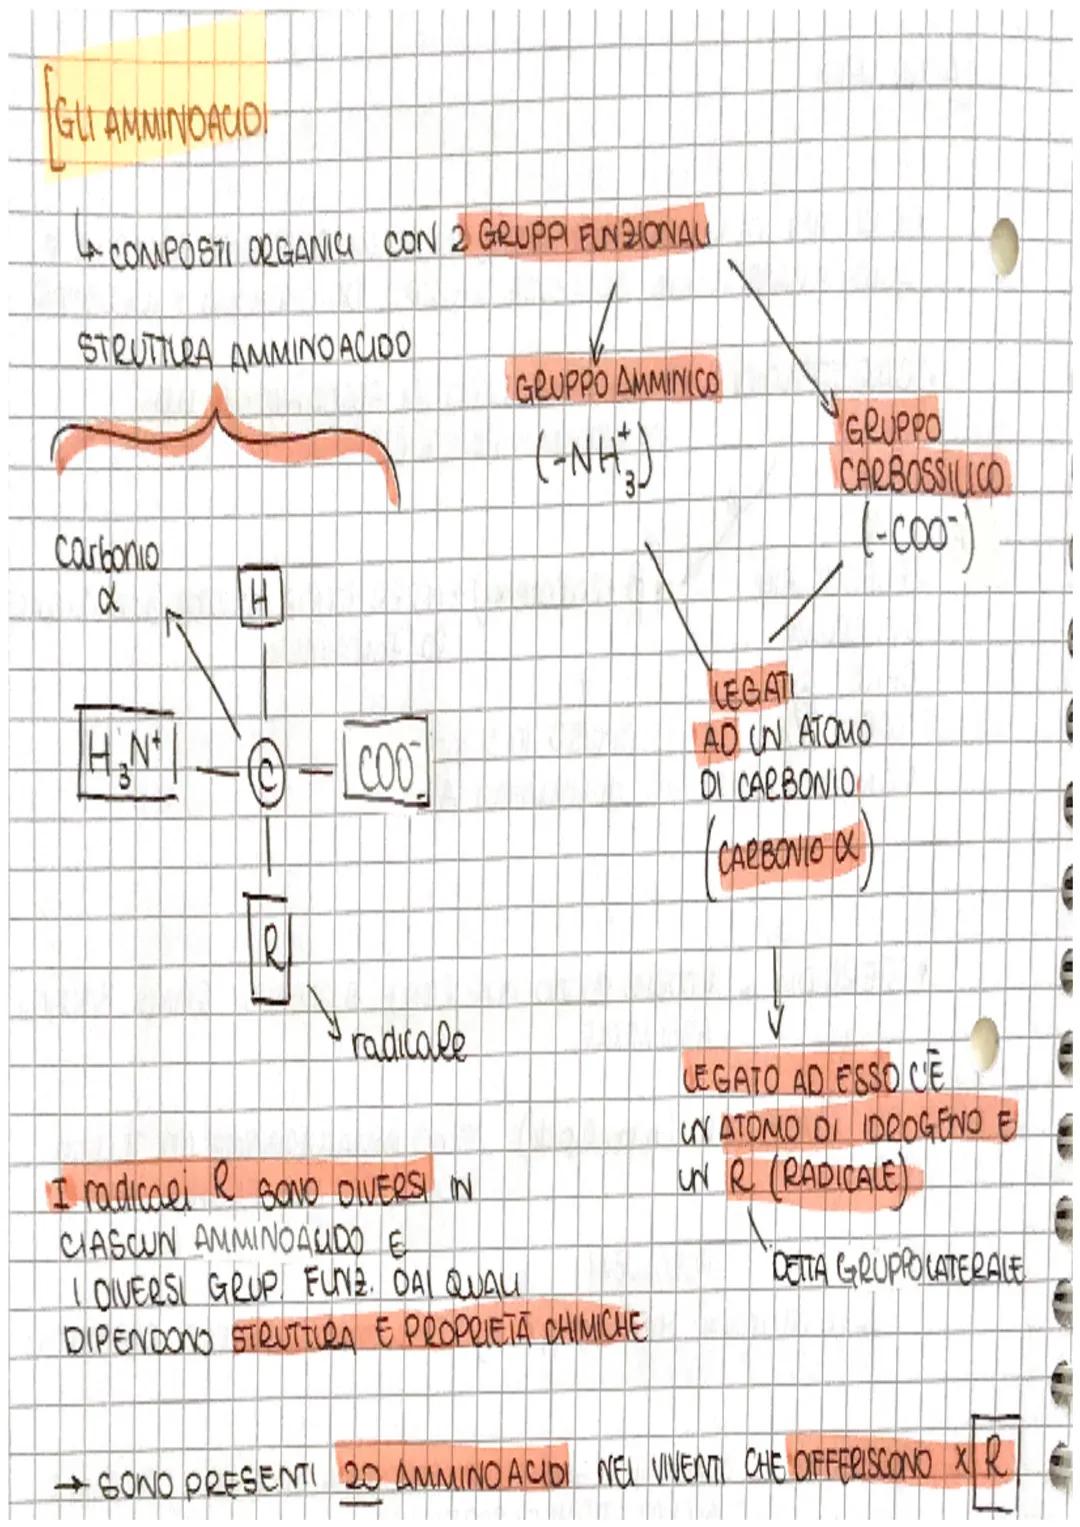 GLI AMMINOACIDI
↳ COMPOSTI ORGANICI CON 2 GRUPPI FUNZIONALI
STRUTTURA AMMINOACIDO
GRUPPO AMMINICO
(-NH₃⁺)
GRUPPO
CARBOSSILICO
(-COO⁻)
carbonio
α
H
H₃N⁺ - C - COO⁻
R
radicale
LEGATI
AD UN ATOMO
DI CARBONIO
(CARBONIO α)
LEGATO AD ESSO C'È
UN ATOMO DI IDROGENO E
UN R (RADICALE)
DETTA GRUPPO LATERALE
I radicali R SONO DIVERSI IN
CIASCUN AMMINOACIDO E
I DIVERSI GRUP. FUNZ. DAI QUALI
DIPENDONO STRUTTURA E PROPRIETÀ CHIMICHE
→ SONO PRESENTI 20 AMMINOACIDI NEI VIVENTI CHE DIFFERISCONO X R